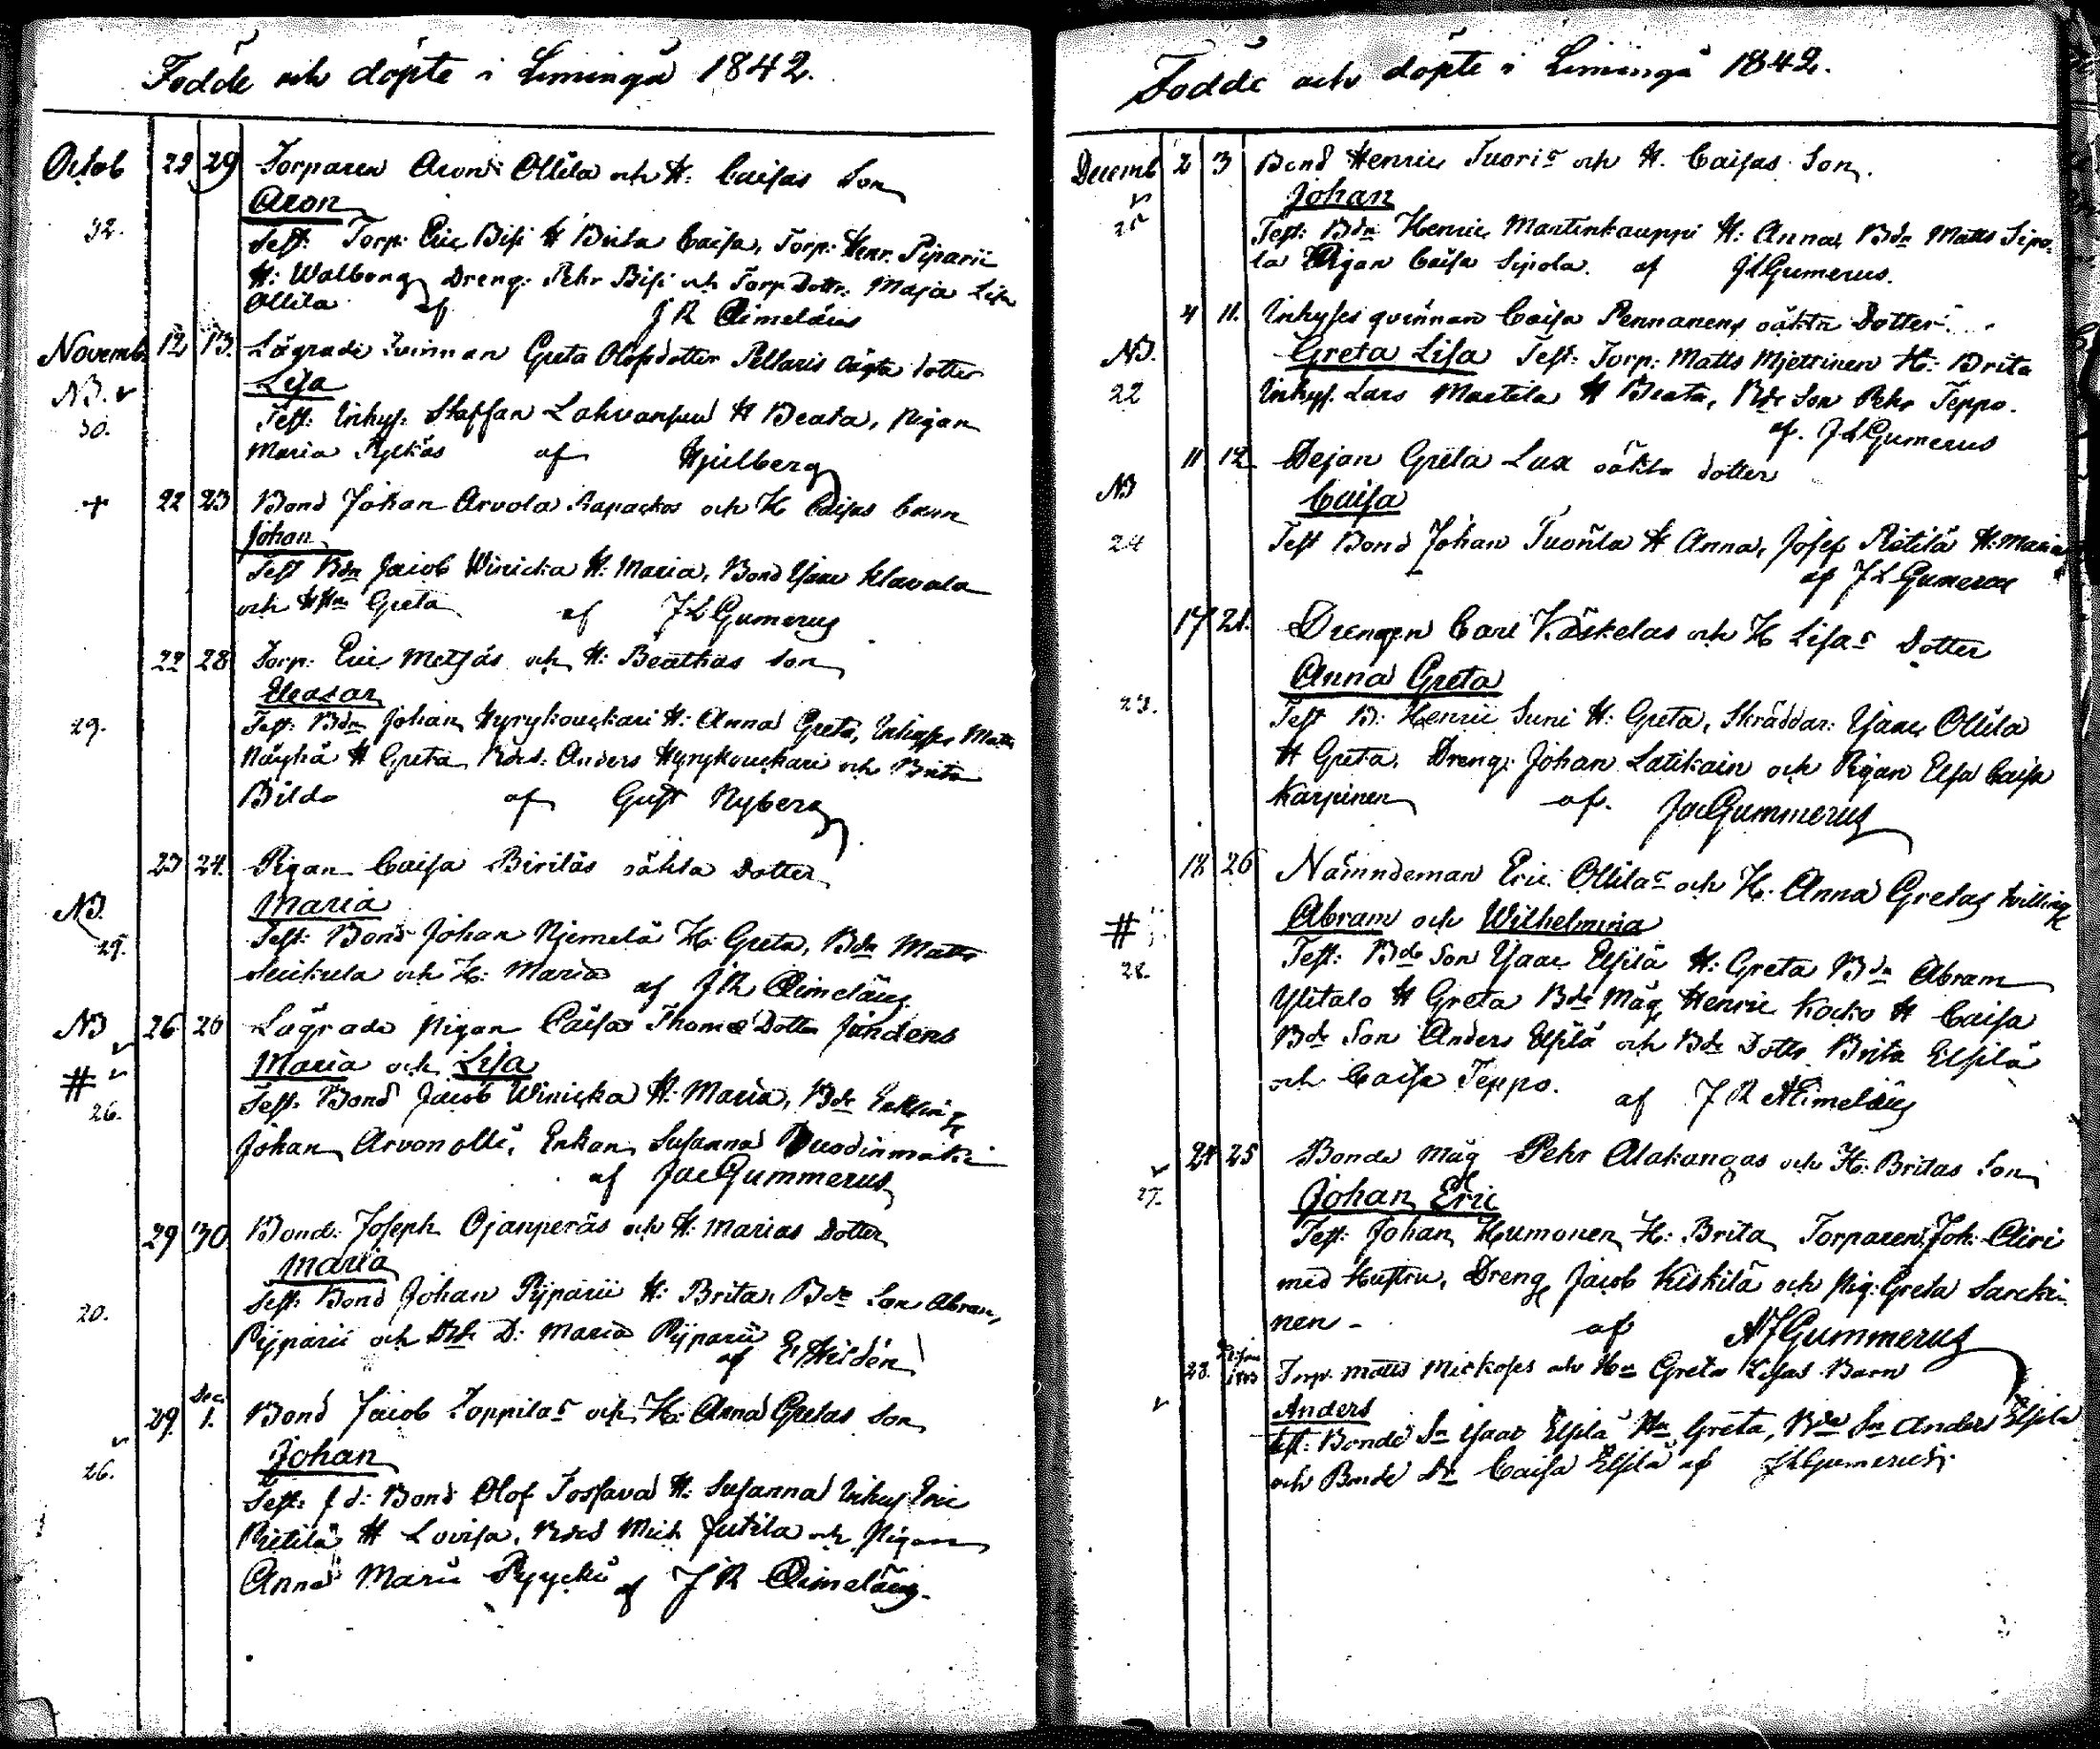 Födde och döpte i Limingå 1842.
Octob 29 29 Torparen Aron Ollila och H: Caisas Son
Aron
32. Test: Torp: Eric Bisi H Brita Caisa, Torp: Henr. Piparii
H: Walborg, Dreng: Pehr Bisi och Torp Dottr: Maja Lisa
Ollila af J R Aimelæus
Novemb 12 13. Lägrade qvinnan Greta Olofsdotter Pellaris oägta dotter
NB. Lisa
30. Test: Inhys: Staffan Lahvansuu H Beata, Pigan
Maria af Hjulberg
+ 22 23 Bond Johan Arvola Rapackos och H Caisas barn
Johan
Test Bdn Jacob Winicka H: Maria, Bond Isaac Klavala
och Hn Greta af J L Gumerus
22 28 Torp: Eric Metsäs och H: Beathas Son
Eleasar
29. Test: Bdn Johan Hyrykouckari H: Anna Greta, Inhyses Matts
Näyhä H Greta, Bdes: Anders Hyrykouckari och Brita
Bildo af Gust Nyberg
23 24. Pigan Caisa Biriläs oäkta Dotter
NB. Maria
Test: Bond Johan Njemelä H: Greta, Bdn Matts
och H: Maria af J R Aimelæus
NB 26 26 Lägrade Pigan Caisas Thomæ Dotter Jundens
# Maria och Lisa
26. Test: Bond Jacob Winicka H: Maria, Bde
Johan Arvonolli, Enkan Susanna Vuodinmaki
af Jac Gummerus
29 30 Bond: Joseph Ojanperäs och H: Marias Dotter
Maria
Test: Bond Johan Pijparii H: Brita, Bde Son Abram
20. Pijparii och Bde D: Maria Pijparii
af
29 Dec. 1. Bond Jacob Toppilas och H: Anna Gretas Son
Johan
26. Test: f d: Bond Olof Tossava H: Susanna Inhys Eric
Pietilä H Lovisa, Bdes Mich Jutila och Pigan
Anna Maria Ryycki af J R Aimelæus.
Födde och döpte i Limingå 1842.
Decemb 2 3 Bond Henric Tuoris och H. Caisas Son.
Johan
25 Test: Bdn Henric Martinkauppi H: Anna, Bdn Matts Sipo-
la Pigan Caisa Sipola. af J L Gumerus.
4 11. Inhyses qvinnan Caisa Pennanens oäkta Dotter
NB. Greta Lisa Test: Torp: Matts Mjettinen H: Brita
22 Inhys. Lars Martila H Beata, Bde Son Pehr Teppo.
af. J L Gumerus
11 12 Pejan Greta Lux oäkta dotter
NB Caisa
24 Test Bond Johan Tuorila H Anna, Josef Pietilä H: Maria
af J L Gumerus
17 21. Drengen Carl Käskelas och H Lisas Dotter
Anna Greta
23. Test B: Henric Suni H: Greta, Skräddar: Isaac Ollila
H Greta, Dreng: Johan Latikain och Pigan Elsa Caisa
Karpinen af. Jac Gummerus
18 26 Nämndeman Eric Ollilas och H: Anna Gretas tvilling
# Abram och Wilhelmina
28. Test: Bde Son Isaac Elsilä H: Greta Bdn Abram
Ylitalo H Greta Bde Måg Henric Kocko H Caisa
Bde Son Anders Elsilä och Bde Dottr Brita Elsilä
och Caisa Teppo. af J R Aimelæus
24 25 Bonde Måg Pehr Alakangas och H: Britas Son
27. Johan Eric
Test: Johan Humonen H: Brita, Torparen Joh: Airi
med Hustru, Dreng Jacob Kiskilä och Pig: Greta Sarcki-
nen - af A J Gummerus
28. Torp. Matts Mickoses och Hn Greta Lisas Barn
Anders
Test: Bonde Sn Isaac Elsilä Hn Greta, Bde Sn Anders Elsilä
och Bonde Dr Caisa Elsilä af J L Gumerus